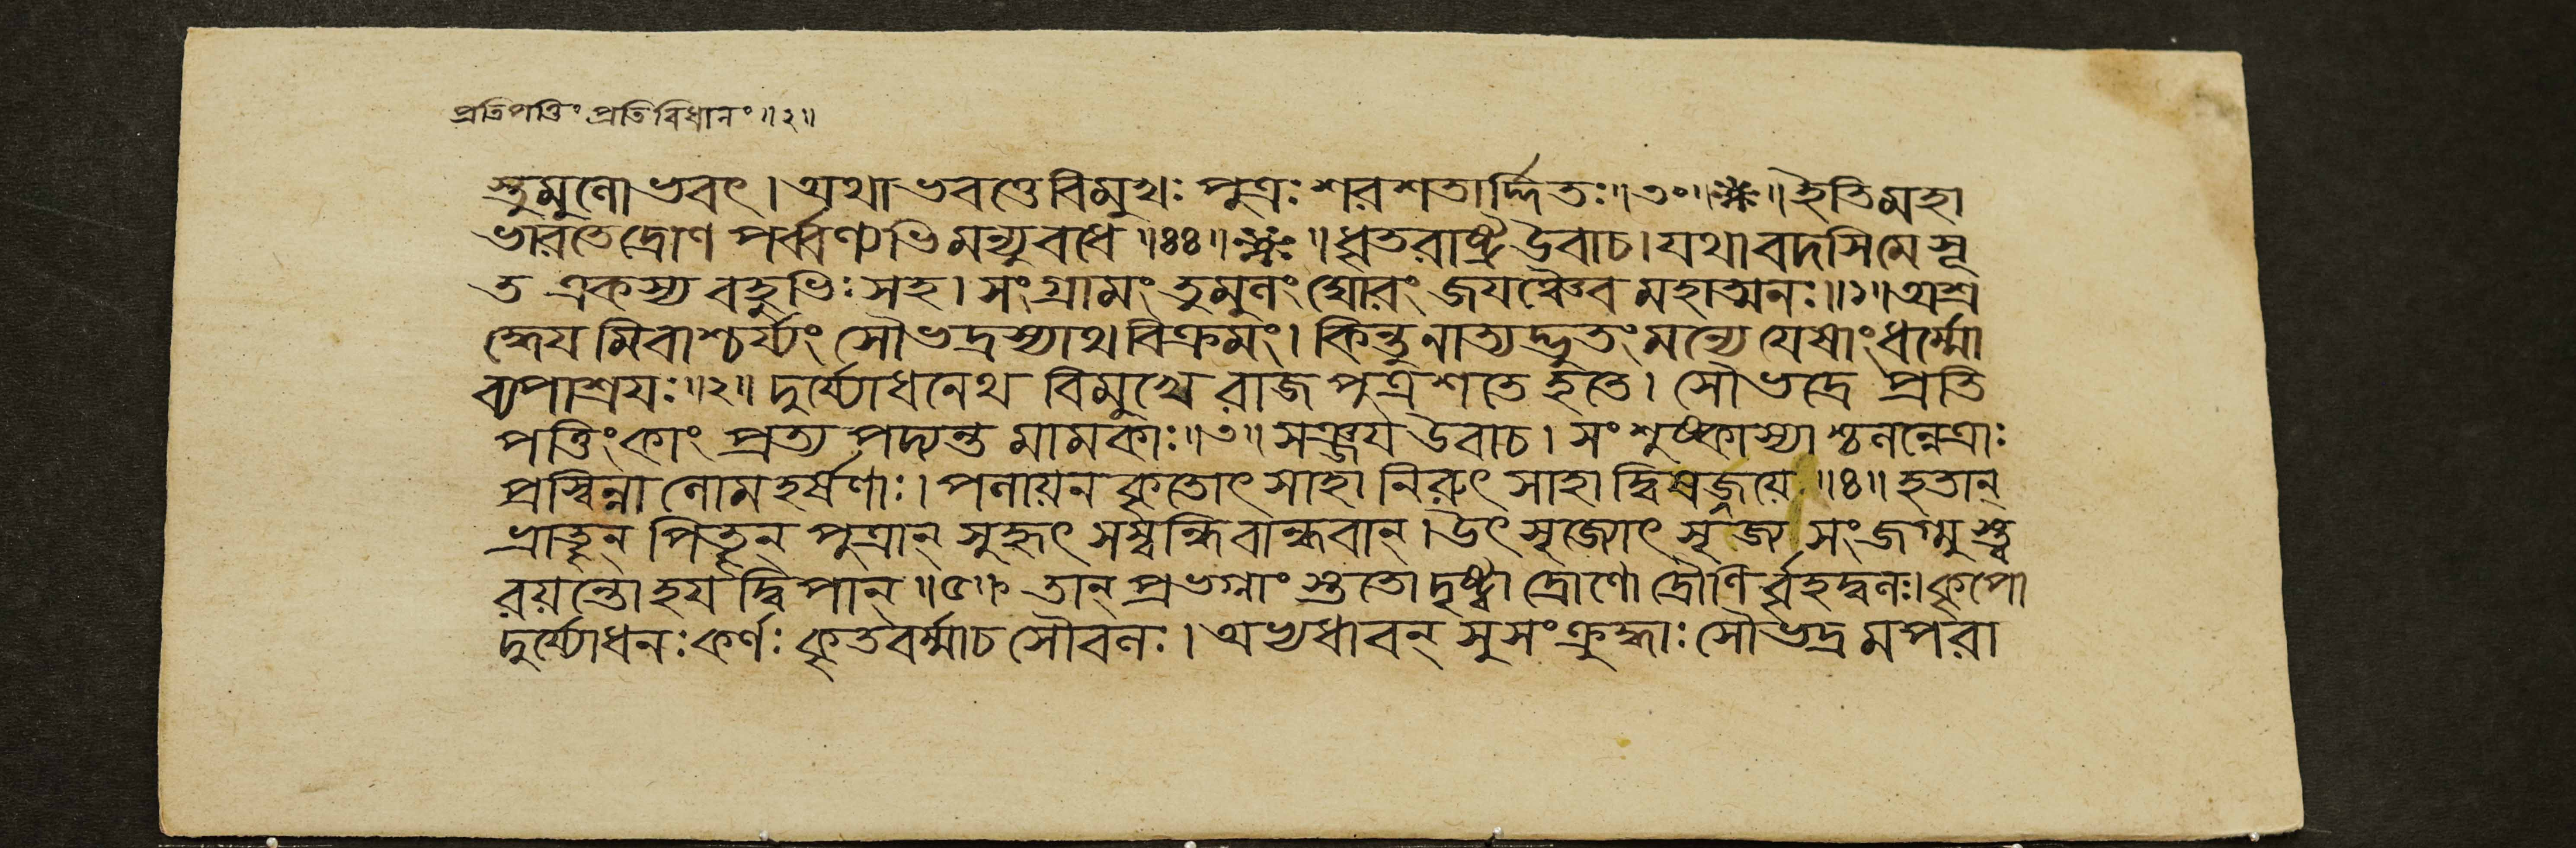 প্রতিপত্তিং প্রতিবিধানং॥২॥
স্তুমুলো ভবৎ। অথাভবত্তে বিমুখঃ পুত্রঃ শরশতার্দ্দিতঃ॥৩০॥ ইতি মহা
ভারতে দ্রোণ পর্ব্বণ্যভিমন্যুবধে॥৪৪॥ ধৃতরাষ্ট্র উবাচ। যথা বদসি মে সূ
ত একস্য বহুভিঃ সহ। সংগ্রামং তুমুলং ঘোরং জয়ঞ্চৈব মহাত্মনঃ॥১॥ অশ্র
দ্ধেয়মিবাশ্চর্য্যং সৌভদ্রস্যাথ বিক্রমং। কিন্তু নাত্যদ্ভুতং মন্যে যেষাং ধর্ম্মো
ব্যপাশ্রয়ঃ॥২॥ দুর্য্যোধনেথ বিমুখে রাজপুত্রশতে হতে। সৌভদ্রে প্রতি
পত্তিং কাং প্রত্যপদ্যন্ত মামকাঃ॥৩॥ সঞ্জয় উবাচ। সংশুষ্কাস্যাশ্চলন্নেত্রাঃ
প্রস্বিন্না লোমহর্ষণাঃ। পলায়ন কৃতোৎসাহা নিরুৎসাহা দ্বিষজ্জয়ে॥৪॥ হতান্
ভ্রাতৄন্ পিতৄন্ পুত্রান্ সুহৃৎ সম্বন্ধিবান্ধবান্। উৎসৃজ্যোৎসৃজ্য সংজগ্মুস্ত্ব
রয়ন্তো হয়দ্বিপান্॥৫॥ তান্ প্রভগ্নাংস্ততো দৃষ্ট্বা দ্রোণো দ্রৌণির্বৃহদ্বলঃ। কৃপো
দুর্য্যোধনঃ কর্ণঃ কৃতবর্ম্মাচ সৌবলঃ। অভ্যধাবন্ সুসংক্রুদ্ধাঃ সৌভদ্রমপরা